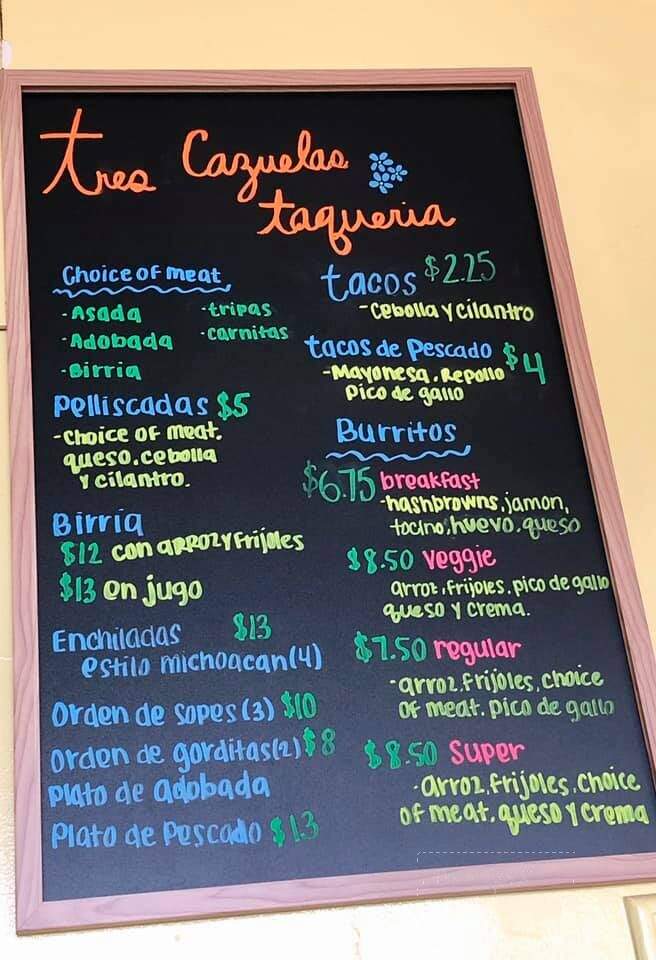 Tres Cazuelas
taqueria
Choice of meat
- Asada
- Adobada
- Birria
- tripas
- carnitas
Pelliscadas $5
- Choice of meat.
queso. cebolla
y cilantro.
Birria
$12 con arroz y frijoles
$13 en jugo
Enchiladas $13
estilo michoacan (4)
Orden de sopes (3) $10
Orden de gorditas (2) $8
Plato de adobada
Plato de Pescado $13
tacos $2.25
- Cebolla y cilantro
tacos de Pescado $4
- Mayonesa. Repollo
Pico de gallo
Burritos
$6.75 breakfast
- hashbrowns, jamon,
tocino, huevo, queso
$8.50 Veggie
arroz, frijoles, pico de gallo
queso y crema.
$7.50 regular
- arroz, frijoles, choice
of meat. pico de gallo
$8.50 Super
- arroz, frijoles, choice
of meat, queso y crema